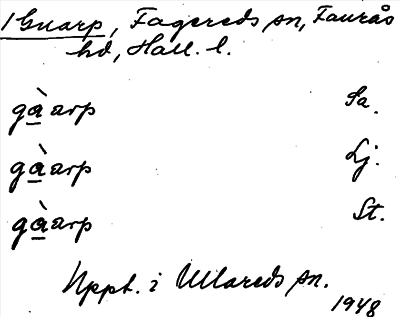 1 Gnarp, Fagereds sn, Faurås
hd, Hall. l.
gàarp Sa.
gàarp Lj.
gàarp St.
Uppt. i Ullareds sn.
1948